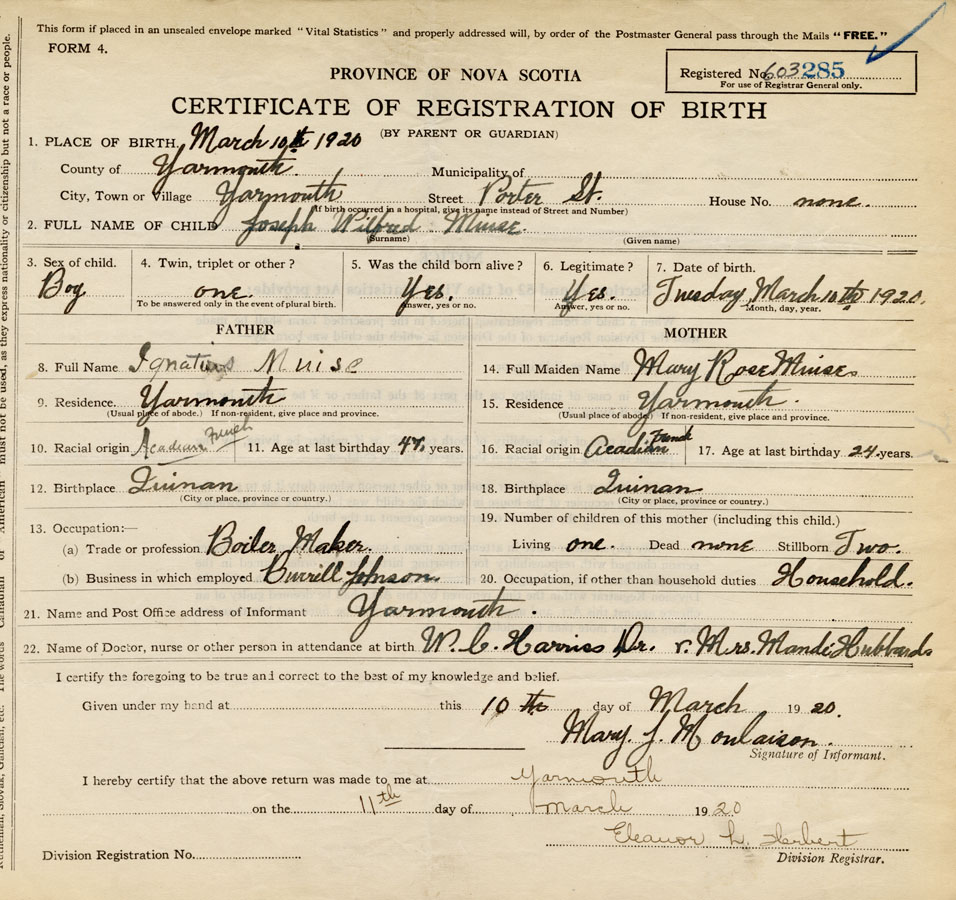 This form if placed in an unsealed envelope marked "Vital Statistics" and properly addressed will, by order of the Postmaster General pass through the Mails "FREE."
FORM 4.
Registered No. 603285
For use of Registrar General only.
PROVINCE OF NOVA SCOTIA
CERTIFICATE OF REGISTRATION OF BIRTH
(BY PARENT OR GUARDIAN)
1. PLACE OF BIRTH. March 10th 1920
County of Yarmouth. Municipality of
City, Town or Village Yarmouth Street Porter St. House No. none.
(If birth occurred in a hospital, give its name instead of Street and Number)
2. FULL NAME OF CHILD Joseph Wilfred Muise.
(Surname) (Given name)
3. Sex of child. 4. Twin, triplet or other? 5. Was the child born alive? 6. Legitimate? 7. Date of birth.
Boy one. Yes. Yes. Tuesday March 10th 1920.
To be answered only in the event of plural birth. Answer, yes or no. Answer, yes or no. Month, day, year.
FATHER
8. Full Name Ignatius Muise
9. Residence. Yarmouth
(Usual place of abode.) If non-resident, give place and province.
10. Racial origin Acadian French 11. Age at last birthday 47. years.
12. Birthplace Quinan
(City or place, province or country.)
13. Occupation:—
(a) Trade or profession Boiler Maker.
(b) Business in which employed Burrill Johnson.
MOTHER
14. Full Maiden Name Mary Rose Muise.
15. Residence Yarmouth.
(Usual place of abode) If non-resident, give place and province.
16. Racial origin Acadian French 17. Age at last birthday 24. years.
18. Birthplace Quinan
(City or place, province or country.)
19. Number of children of this mother (including this child.)
Living one. Dead none Stillborn Two.
20. Occupation, if other than household duties Household.
21. Name and Post Office address of Informant Yarmouth.
22. Name of Doctor, nurse or other person in attendance at birth W. C. Harriss Dr. Mrs. Hubbards
I certify the foregoing to be true and correct to the best of my knowledge and belief.
Given under my hand at this 10 th day of March 1920.
Mary. J. Moulaison.
Signature of Informant.
I hereby certify that the above return was made to me at Yarmouth
on the 11th day of March 1920
Eleanor L. Herbert
Division Registrar.
Division Registration No.
must not be used, as they express nationality or citizenship but not a race or people.